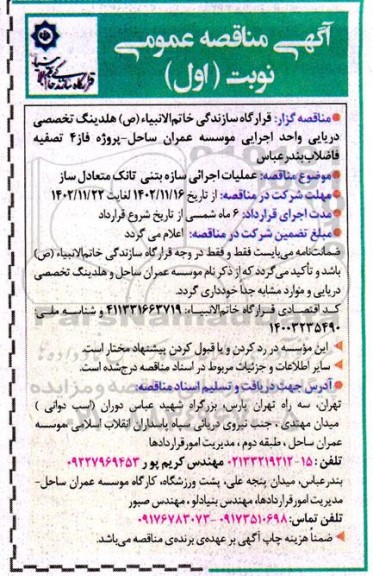 آگهی مناقصه عمومی
نوبت (اول)
مناقصه گزار: قرارگاه سازندگی خاتم‌الانبیاء (ص) هلدینگ تخصصی
دریایی واحد اجرایی موسسه عمران ساحل-پروژه فاز۴ تصفیه
فاضلاب بندرعباس
موضوع مناقصه: عملیات اجرائی سازه بتنی تانک متعادل ساز
مهلت شرکت در مناقصه: از تاریخ ۱۴۰۲/۱۱/۱۶ لغایت ۱۴۰۲/۱۱/۲۲
مدت اجرای قرارداد: ۶ ماه شمسی از تاریخ شروع قرارداد
مبلغ تضمین شرکت در مناقصه: اعلام می گردد
ضمانت‌نامه می‌بایست فقط و فقط در وجه قرارگاه سازندگی خاتم‌الانبیاء (ص)
باشد و تأکید می‌گردد که از ذکر نام موسسه عمران ساحل و هلدینگ تخصصی
دریایی و موارد مشابه جداً خودداری گردد.
کد اقتصادی قرارگاه خاتم‌الانبیاء: ۴۱۱۳۳۱۶۶۳۷۱۹ و شناسه ملی:
۱۴۰۰۳۲۳۵۴۹۰
این مؤسسه در رد کردن و یا قبول کردن پیشنهاد مختار است.
سایر اطلاعات و جزئیات مربوط در اسناد مناقصه درج‌شده است.
آدرس جهت دریافت و تسلیم اسناد مناقصه:
تهران، سه راه تهران پارس، بزرگراه شهید عباس دوران (اسب دوانی)
میدان مهتدی، جنب نیروی دریائی سپاه پاسداران انقلاب اسلامی، موسسه
عمران ساحل، طبقه دوم، مدیریت امور قراردادها
تلفن: ۱۵-۰۲۱۳۳۲۱۹۲۱۲ مهندس کریم پور ۰۹۲۲۷۹۶۹۴۵۳
بندرعباس، میدان پنجه علی، پشت ورزشگاه، کارگاه موسسه عمران ساحل-
مدیریت امور قراردادها، مهندس بنیادلو، مهندس صبور
تلفن تماس: ۰۹۱۷۳۵۱۰۶۹۸-۰۹۱۷۶۷۸۳۰۷۳
ضمناً هزینه چاپ آگهی بر عهده‌ی برنده‌ی مناقصه می‌باشد.